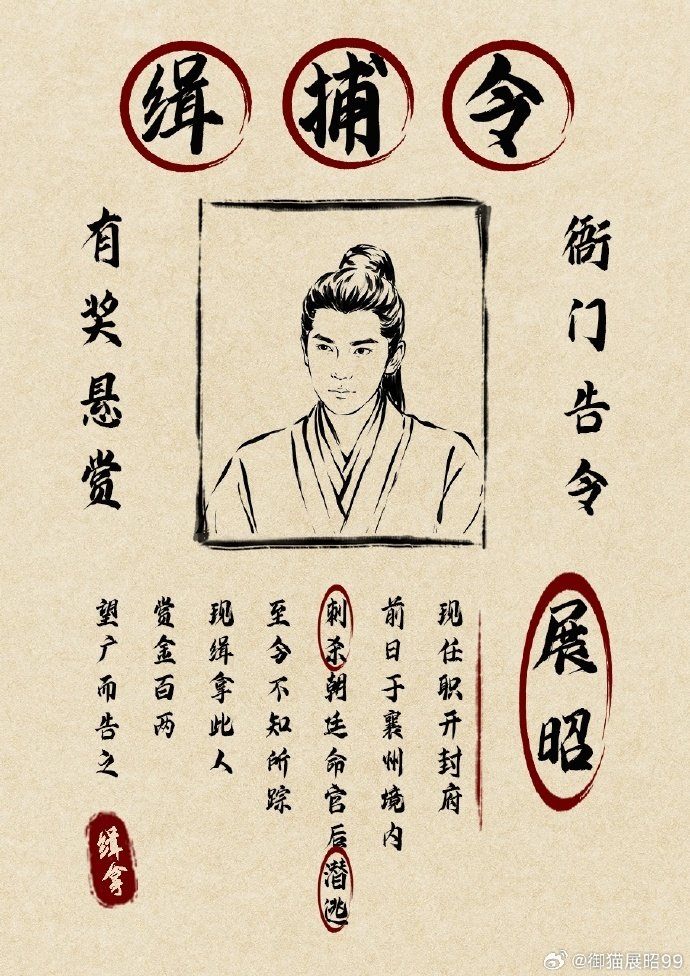 缉捕令
衙门告令
有奖悬赏
展昭
现任职开封府
前日于襄州境内
刺杀朝廷命官后潜逃
至今不知所踪
现缉拿此人
赏金百两
望广而告之
缉拿
@御猫展昭99